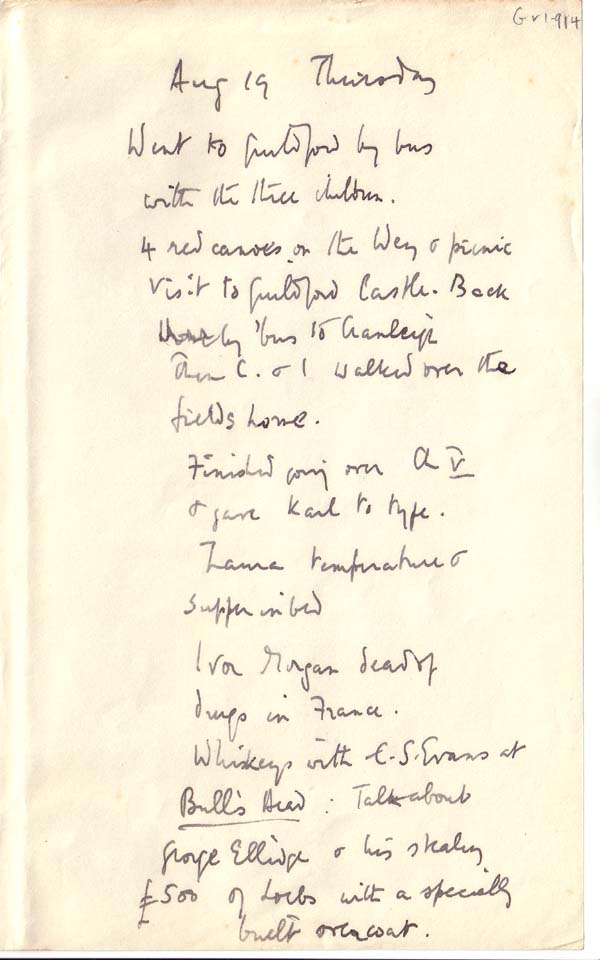 G v 1-914
Aug 19 Thursday
Went to Guildford by bus
with the three children.
4 red canoes on the Wey & picnic
Visit to Guildford Castle. Back
by 'bus to Cranleigh
Then C. & I walked over the
fields home.
Finished going over Ch V
& gave Karl to type.
Laura temperature &
supper in bed
Ivor Morgan dead of
drugs in France.
Whiskeys with C.S. Evans at
Bull's Head : Talk about
George Ellidge & his stealing
£500 of Loebs with a specially
built overcoat.